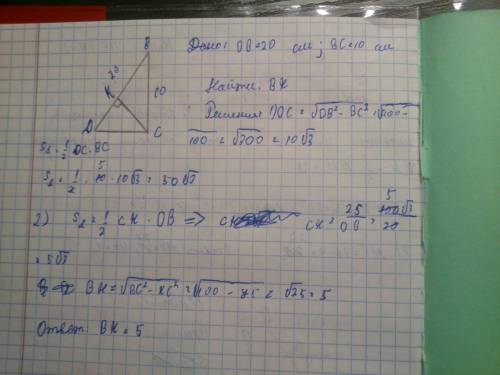 B
Дано: DB=20 см; BC=10 см
20
K
10
Найти: BK
D
C
Решение: DC = √DB² - BC² = √400 -
100 = √300 = 10√3
S△ = 1/2 DC · BC
S△ = 1/2 · 10 · 10√3 = 50√3
5
2) S△ = 1/2 CK · DB => CK = 2S/DB = 100√3/20 =
5
= 5√3
BK = √BC² - KC² = √100 - 75 = √25 = 5
Ответ: BK = 5